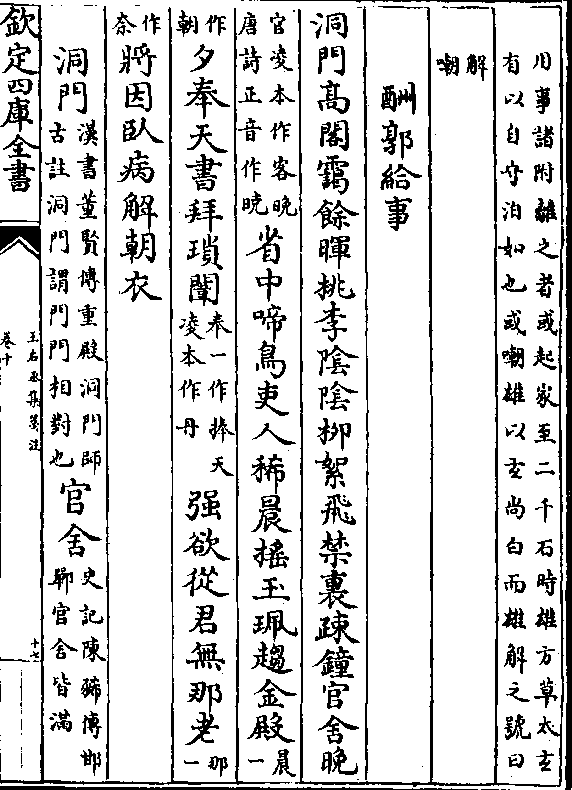 用事諸附離之者或起家至二千石時雄方草太玄
有以自守泊如也或嘲雄以玄尚白而雄解之號曰
解
嘲
酬郭給事
洞門高閣靄餘暉桃李陰陰柳絮飛禁裏疎鐘官舍晚
官凌本作客晚
唐詩正音作晓
省中啼鳥吏人稀晨搖玉珮趨金殿
晨
一
作
朝
夕奉天書拜瑣闈
奉一作捧天
凌本作丹
強欲從君無那老
那
一
作
奈
將因臥病解朝衣
洞門
漢書董賢傳重殿洞門師
古註洞門謂門門相對也
官舍
史記陳豨傳邯
鄲官舍皆滿
欽定四庫全書
王右丞集箋注
卷十
十七